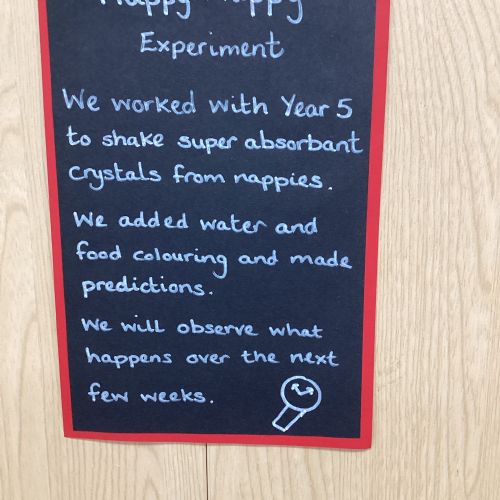 Experiment
We worked with Year 5
to shake super absorbant
crystals from nappies.
We added water and
food colouring and made
predictions.
We will observe what
happens over the next
few weeks.